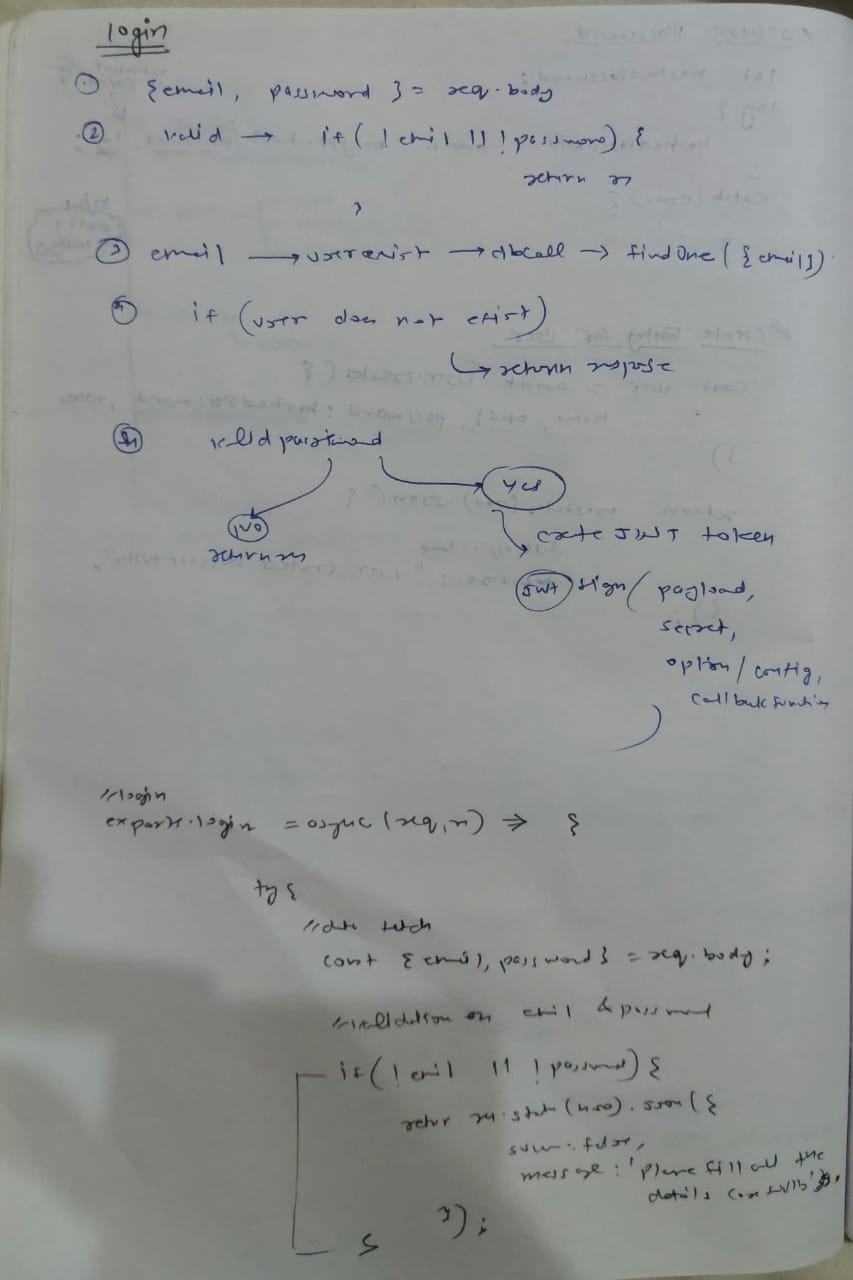 login
① {email, password } = req.body
② valid → if ( ! email || ! password) {
return res
}
③ email → user exist → dbcall → findOne ( { email })
④ if (user does not exist)
→ return response
⑤ valid password
NO
YES
return res
create JWT token
JWT sign ( payload,
secret,
option / config,
callback function
)
//login
exports.login = async (req, res) => {
try {
//data fetch
const { email, password } = req.body ;
//validation on email & password
if ( ! email || ! password) {
return res.status (400).json ( {
success : false,
message : 'Please fill all the
details carefully',
}) ;
}